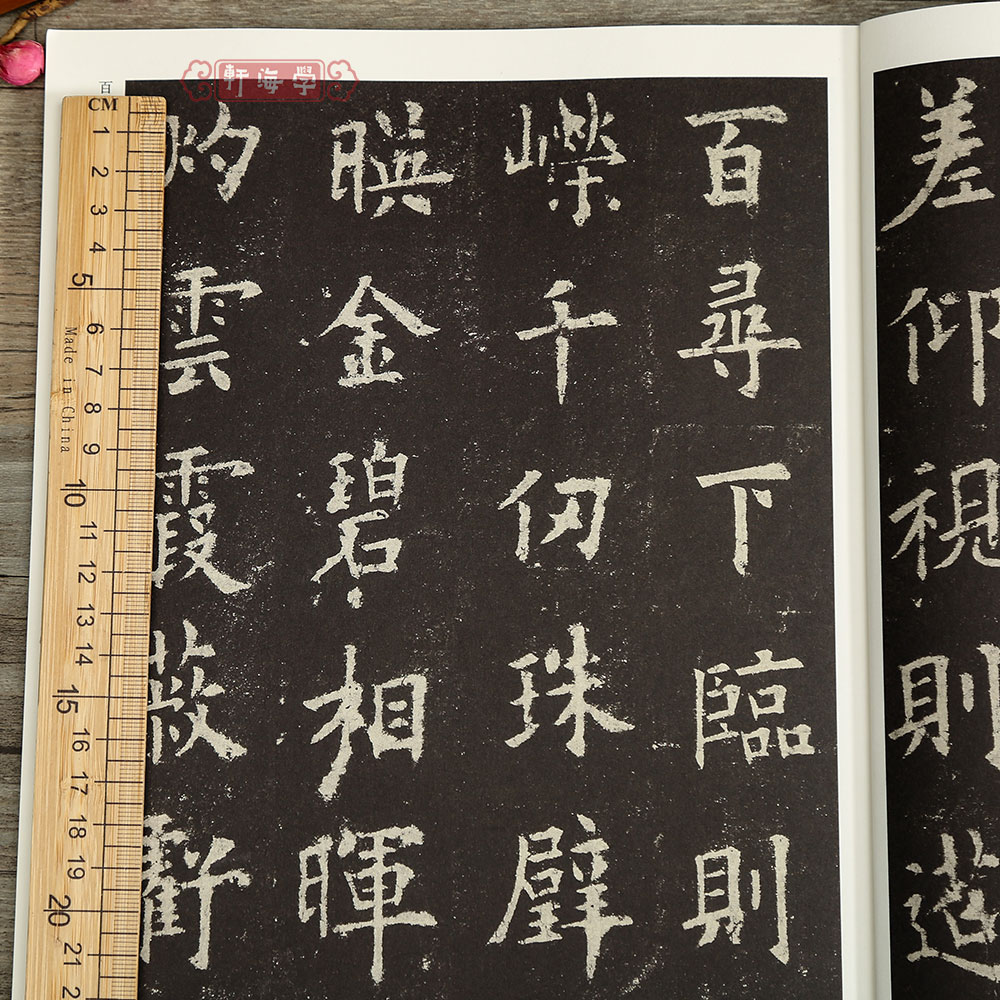 學海軒
差仰視則
百尋下臨則
嶸千仞珠壁
暎金碧相暉
灼雲霞蔽虧
百
CM
1
2
3
4
5
6
7
8
9
10
11
12
13
14
15
16
17
18
19
20
21
Made in China